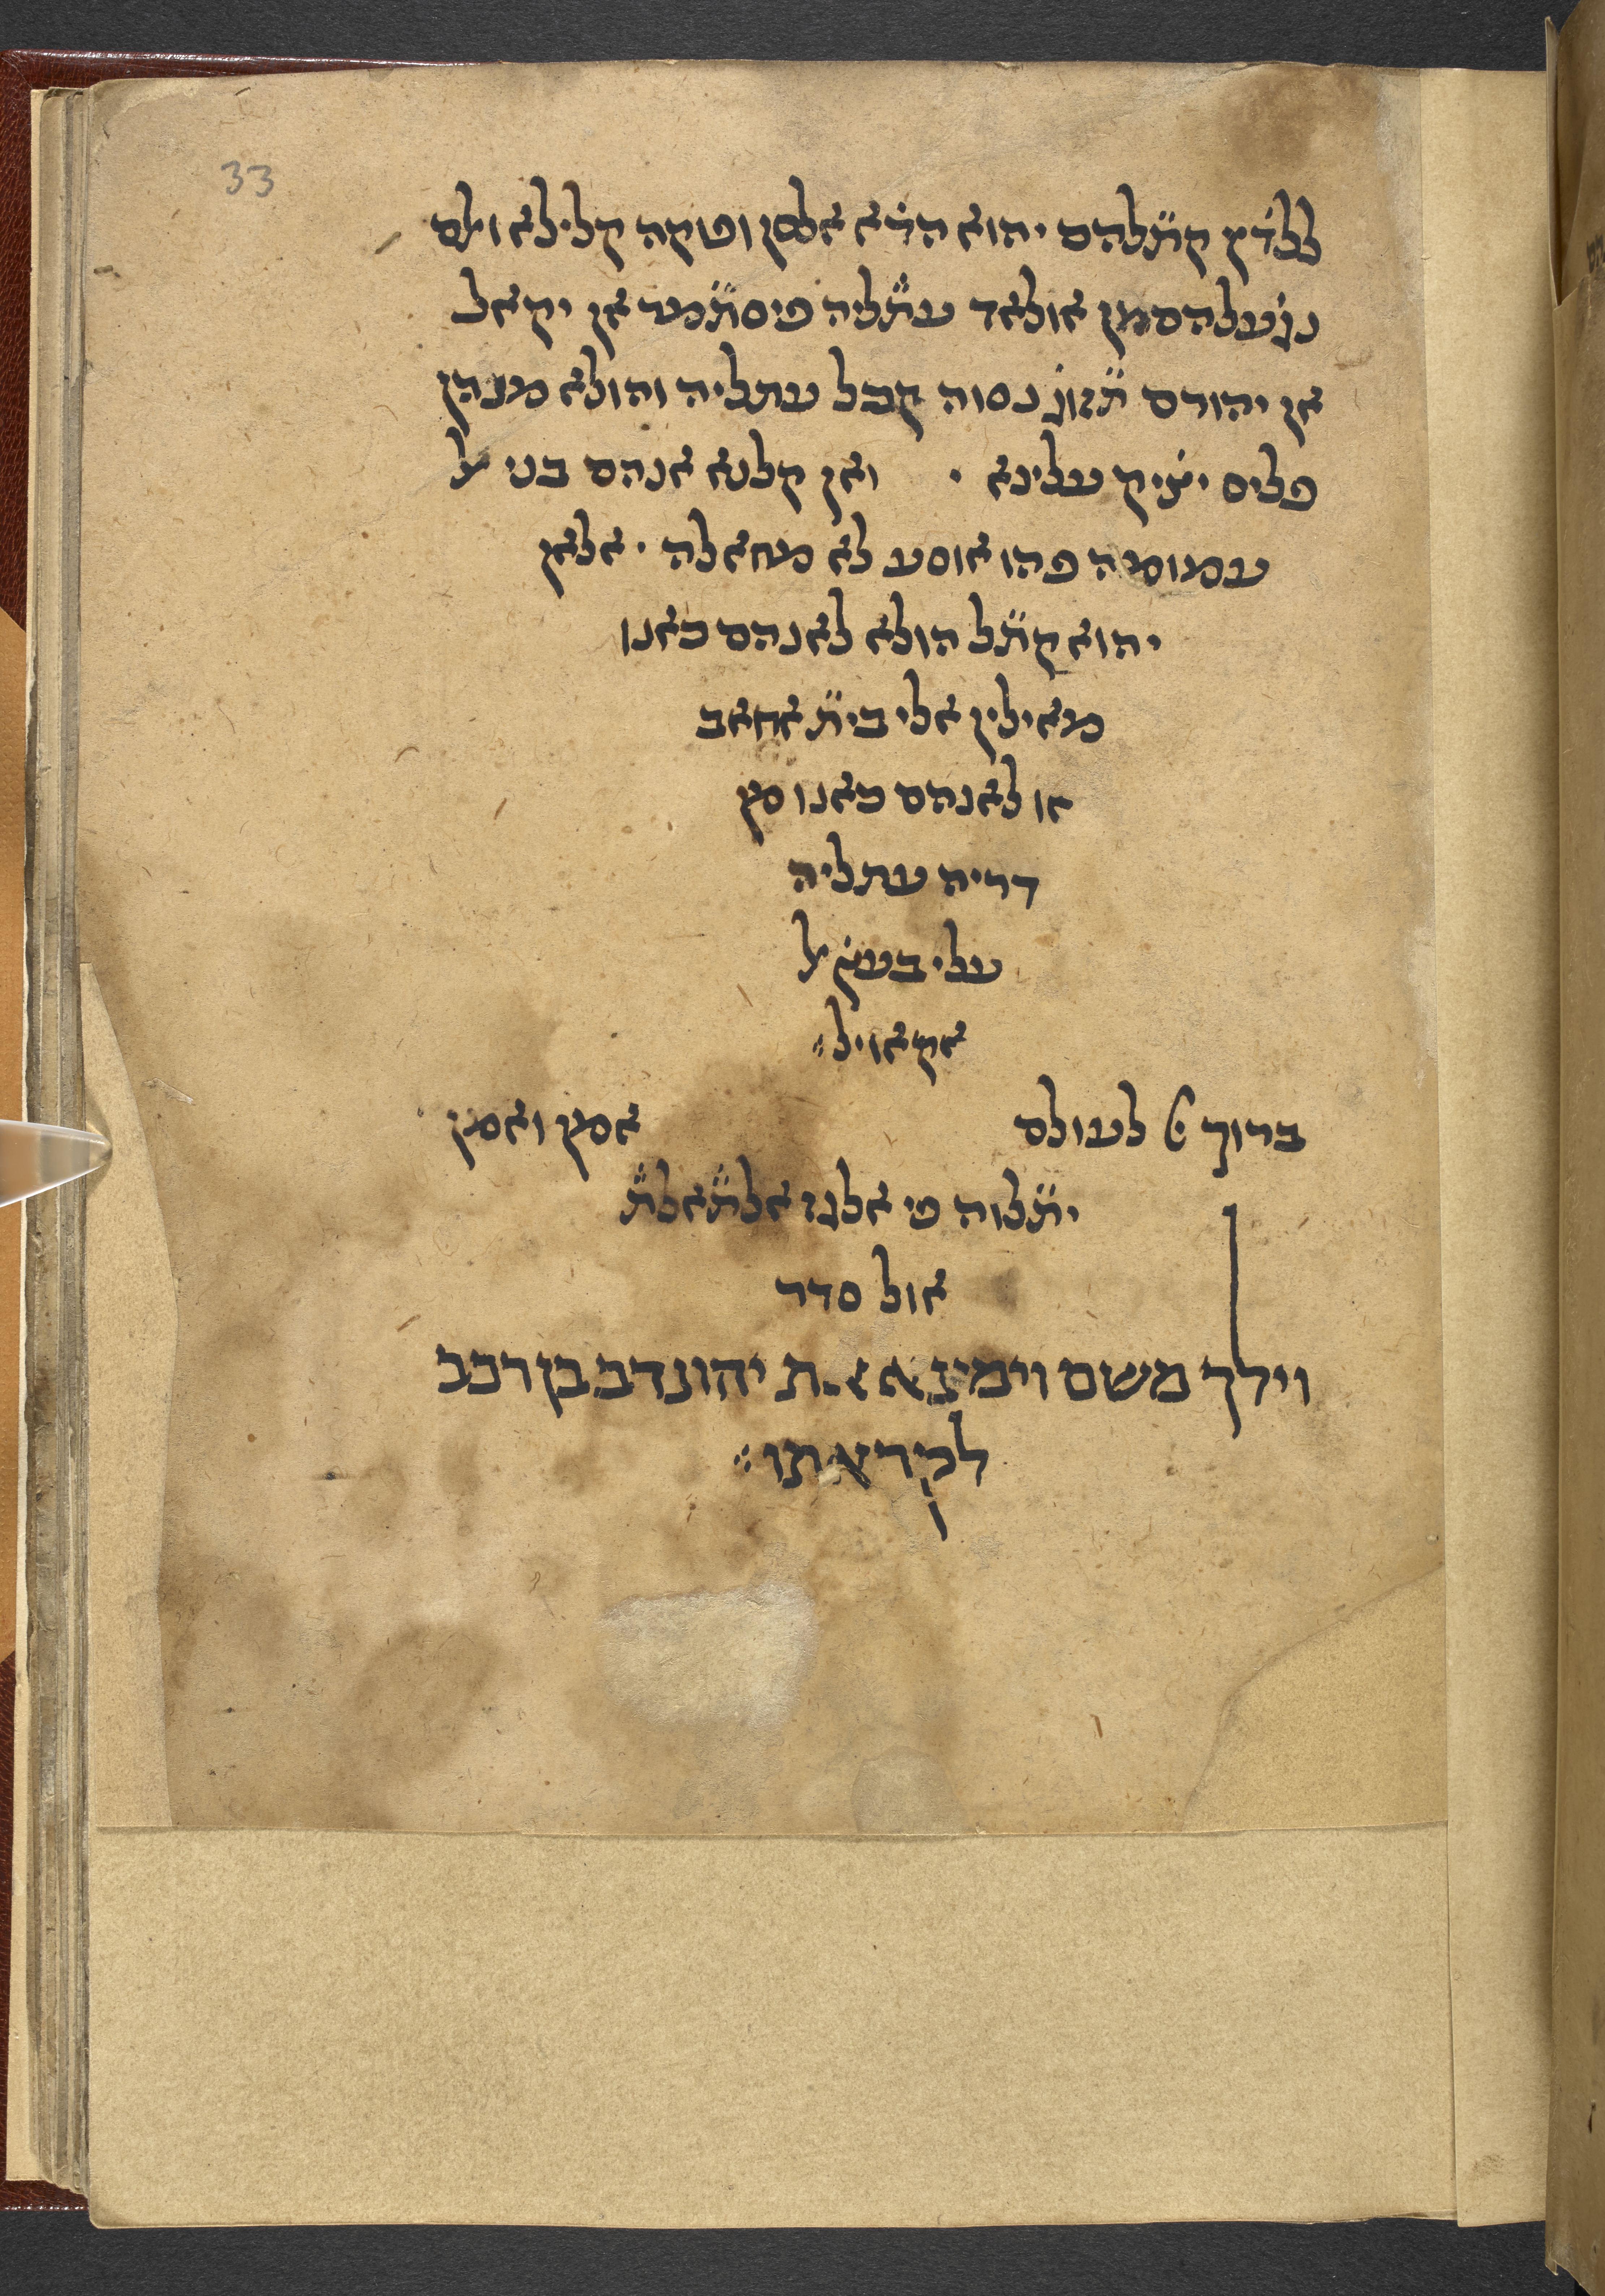 33
ללדׄין קתׄלהם יהוא הדׄא אלסן ופוקה קלילא ולם
נגׄעלהם מן אולאד עתׄליה פיסתׄמר אן יקאל
אן יהורם תׄזוגׄ נסוה קבל עתליה והולא מנהן
פליס יצׄיק עלינא ׳ ואן קלנא אנהם בני אל
עמומה פהו אוסע לא מחאלה ׳ אלאן
יהוא קתׄל הולא לאנהם כאנו
מאילין אלי בית אחאב
או לאנהם כאנו מן
דריה עתליה
עלי בעץׄ אל
אקאויל׃
ברוך ייי לעולם אמן ואמן
יתׄלוה פי אלגז אלתׄאלתׄ
אול סדר
וילך משם וימצא את יהונדב בן רכב
לקראתו׃